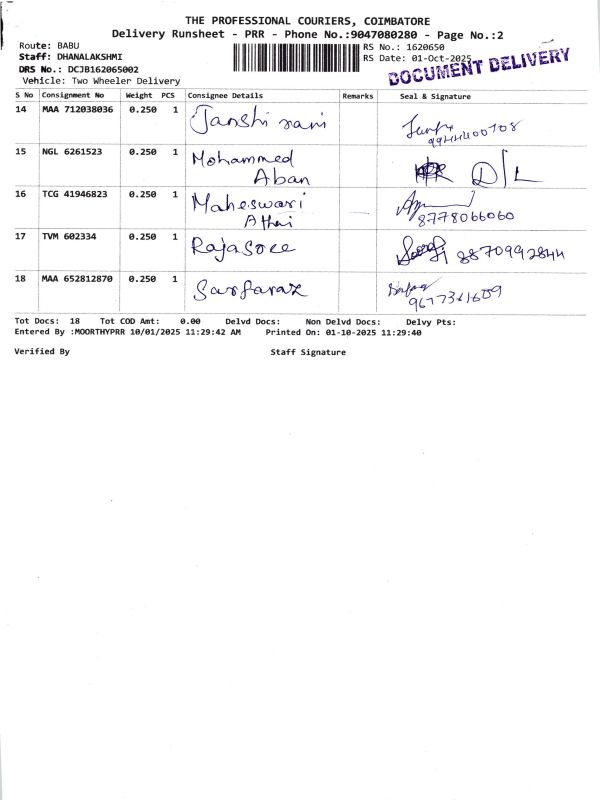 THE PROFESSIONAL COURIERS, COIMBATORE
Delivery Runsheet - PRR - Phone No.:9047080280 - Page No.:2
Route: BABU
Staff: DHANALAKSHMI
DRS No.: DCJB162065002
Vehicle: Two Wheeler Delivery
RS No.: 1620650
RS Date: 01-Oct-2025
DOCUMENT DELIVERY
S No Consignment No Weight PCS Consignee Details Remarks Seal & Signature
14 MAA 712038036 0.250 1 Janshi rani
9944400708
15 NGL 6261523 0.250 1 Mohammed
Aban D/L
16 TCG 41946823 0.250 1 Maheswari
Athai 8778066060
17 TVM 602334 0.250 1 Rajasree 8870992844
18 MAA 652812870 0.250 1 Sarfaraz
9677361609
Tot Docs: 18 Tot COD Amt: 0.00 Delvd Docs: Non Delvd Docs: Delvy Pts:
Entered By :MOORTHYPRR 10/01/2025 11:29:42 AM Printed On: 01-10-2025 11:29:40
Verified By Staff Signature